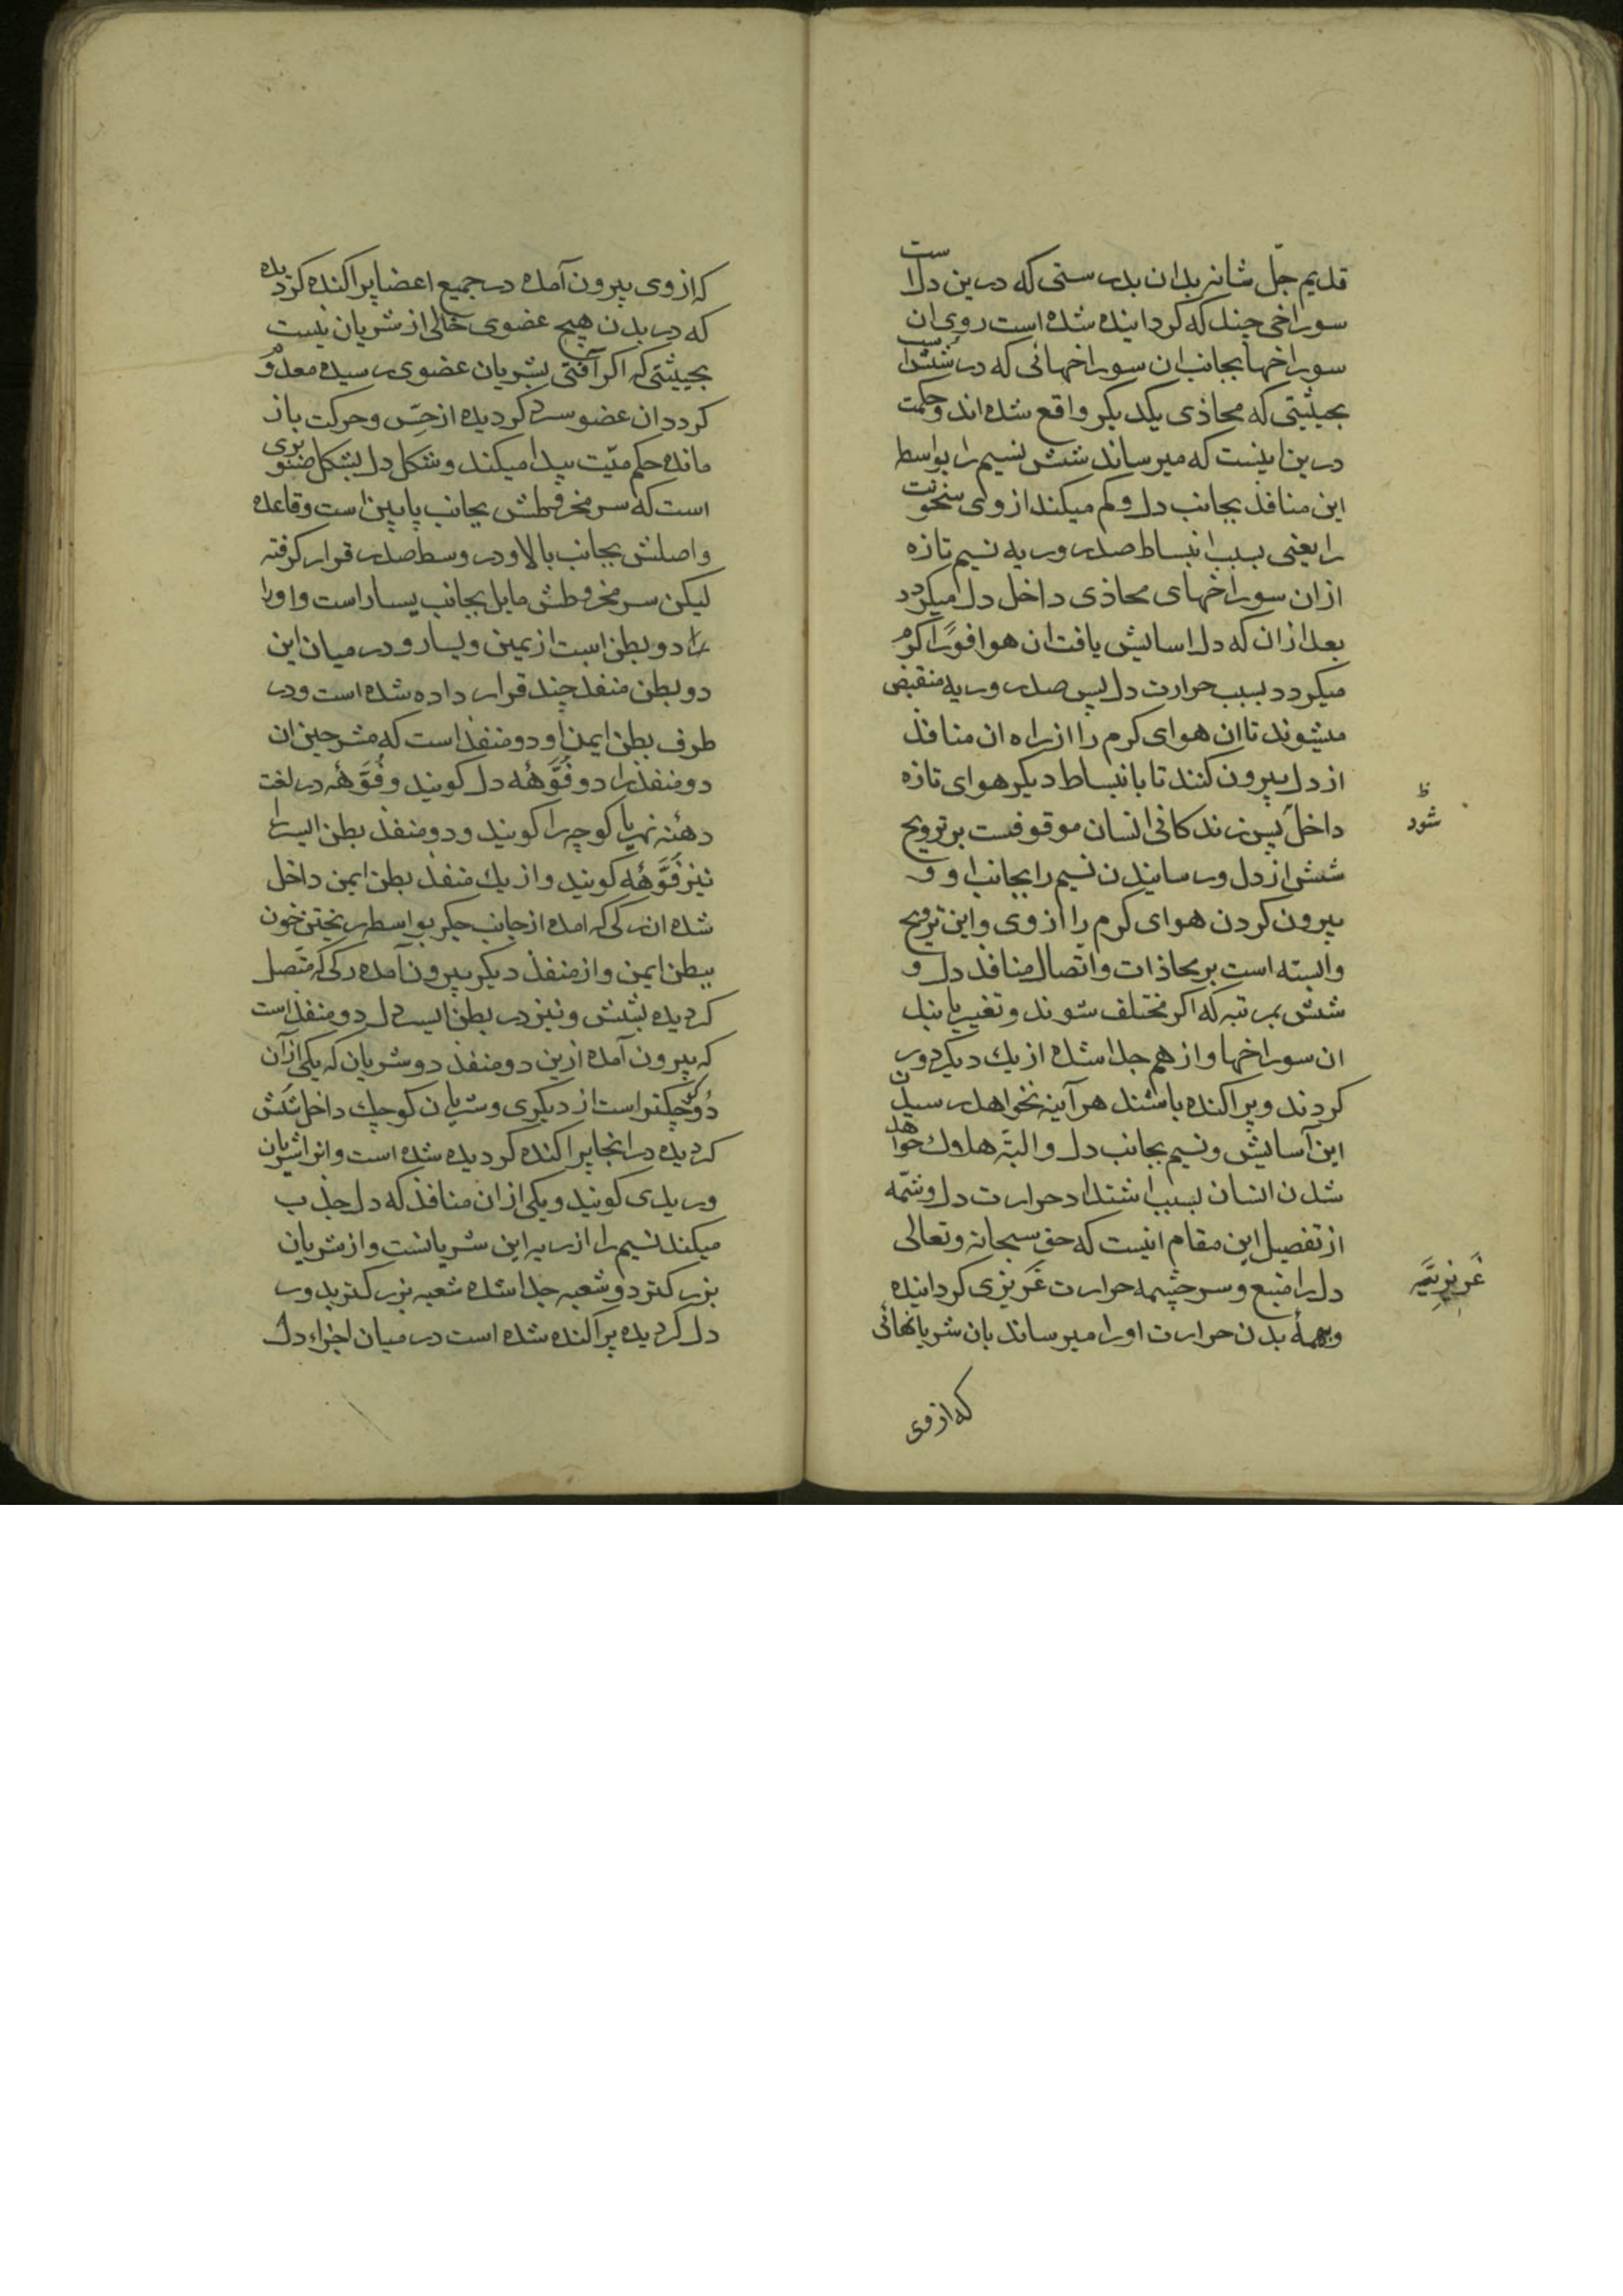 قدیم جلّ شانه بدان بدرستی که درین دلست
سوراخی چند که کردانیده شده است روی ان
سوراخها بجانب ان سوراخهائی که در شش است
بحیثیتی که محاذی یکدیکر واقع شده اند و حکمت
درین اینست که میرساند شش نسیم را بواسطه
این منافذ بجانب دل و کم میکند از وی سخونت
را یعنی بسبب انبساط صدر و ریه نسیم تازه
ازان سوراخهای محاذی داخل دل میکردد
بعد ازان که دل اسایش یافت ان هوا فورًا کرم
میکردد بسبب حرارت دل پس صدر و ریه منقبض
میشوند تا ان هوای کرم را از راه ان منافذ
از دل بیرون کنند تا بانبساط دیکر هوای تازه
داخل پس زندکانی انسان موقوفست بر ترویح
ظ
شود
شش از دل و رسانیدن نسیم را بجانب او و
بیرون کردن هوای کرم را از وی و این ترویح
وابسته است بر محاذات و اتصال منافذ دل و
شش بمرتبه که اکر مختلف شوند و تغییر یابند
ان سوراخها و از هم جدا شده از یك دیکر دور
کردند و پراکنده باشند هر آینه نخواهد رسیدن
این آسایش و نسیم بجانب دل و البتّه هلاك خواهد
شدن انسان بسبب اشتداد حرارت دل و شمّه
از تفصیل این مقام اینست که حق سبحانه و تعالی
دل را منبع و سرچشمه حرارت غَریزی کردانیده
غَرِیزِیَّه
و بهمهٔ بدن حرارت او را میرساند بان شریانهائی
که از وی
که از وی بیرون آمده در جمیع اعضا پراکنده کردیده
که در بدن هیچ عضوی خالی از شریان نیست
بحیثیتی که اکر آفتی بشریان عضوی رسیده معدوم
کردد ان عضو سرد کردیده از حِسّ و حرکت باز
مانده حکم میّت پیدا میکند و شکل دل بشکل صنوبری
است که سر مخروطش بجانب پایین است و قاعده
و اصلش بجانب بالا و در وسط صدر قرار کرفته
لیکن سر مخروطش مایل بجانب یسار است و اورا
را دو بطن است از یمین و یسار و در میان این
دو بطن منفذ چند قرار داده شده است و در
طرف بطن ایمن او دو منفذ است که مشرحین ان
دو منفذ را دو فُوَّهه دل کویند و فُوَّهه در لغت
دهنه نهر یا کوچه را کویند و دو منفذ بطن ایسر را
نیز فُوَّهه کویند و از یك منفذ بطن ایمن داخل
شده ان رکی که امده از جانب جکر بواسطه ریختن خون
ببطن ایمن و از منفذ دیکر بیرون آمده رکی که متّصل
کردیده بشش و نیز در بطن ایسر دل دو منفذ است
که بیرون آمده ازین دو منفذ دو شریان که یکی ازان
دو کوچکتر است از دیکری و شریان کوچك داخل شش
کردیده در انجا پراکنده کردیده شده است و انرا شریان
وریدی کویند و یکی از ان منافذ که دل جذب
میکند نسیم را از ریه این شریانست و از شریان
بزرکتر دو شعبه جدا شده شعبه بزرکتر بدور
دل کردیده پراکنده شده است در میان اجزاء دل